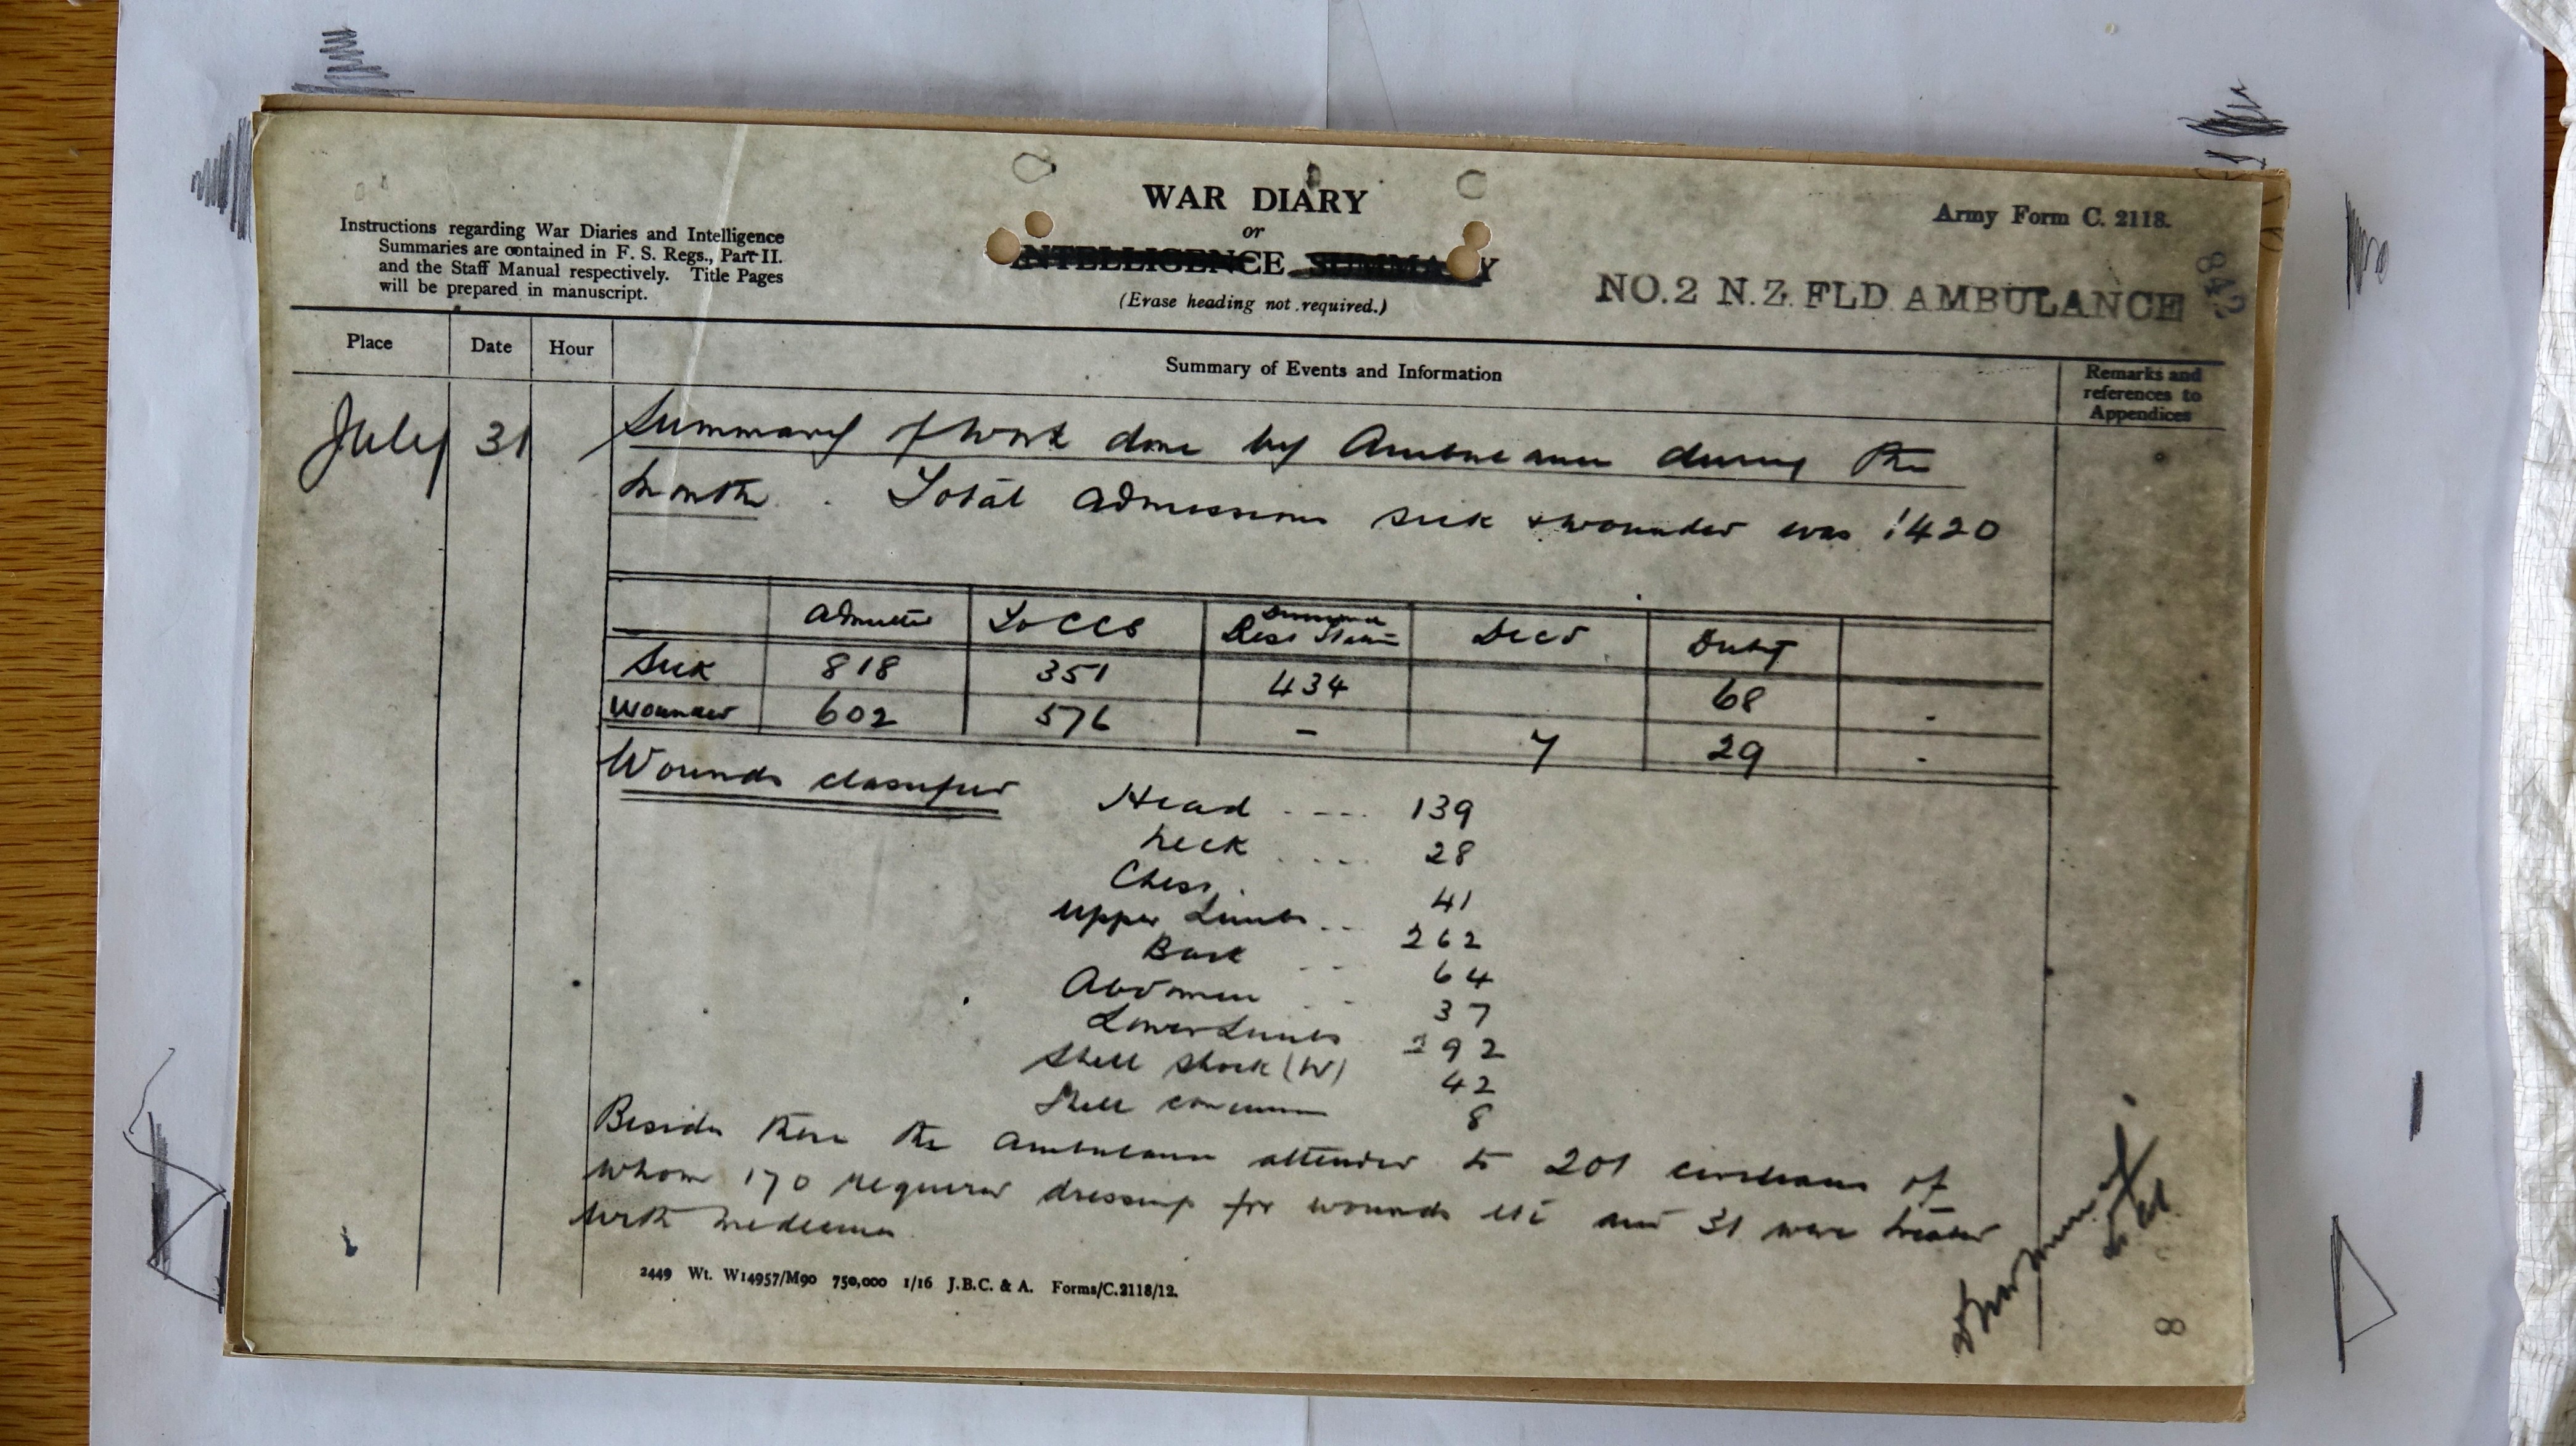 WAR DIARY
or
INTELLIGENCE SUMMARY
(Erase heading not required.)
Instructions regarding War Diaries and Intelligence
Summaries are contained in F. S. Regs., Part II.
and the Staff Manual respectively. Title Pages
will be prepared in manuscript.
Army Form C. 2118.
842
NO. 2 N.Z. FLD AMBULANCE
Place Date Hour Summary of Events and Information Remarks and
references to
Appendices
July 31 Summary of Work done by Ambulance during the
month. Total admissions sick & wounded was 1420
Admitted To CCS Divisional
Rest Station Died Duty
Sick 818 351 434 68 .
Wounded 602 576 - 7 29 .
Wounds classified
Head .... 139
Neck .... 28
Chest . 41
Upper Limbs .. 262
Back .. 64
Abdomen .. 37
Lower Limbs 292
Shell Shock (W) 42
Shell 8
Besides these the ambulance attended to 201 civilians of
whom 170 required dressings for wounds etc and 31 were treated
with medicines
2449 Wt. W14957/M90 750,000 1/16 J.B.C. & A. Forms/C.2118/12.
8